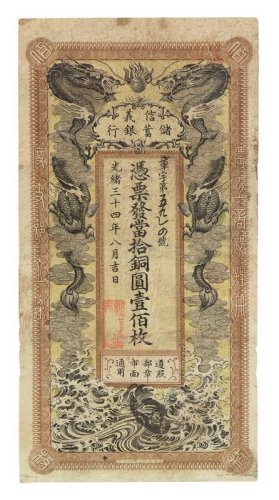 信義儲蓄銀行
字第五九一〇號
憑票發當拾銅圓壹佰枚
光緒三十四年八月吉日
遵照部章市面通用